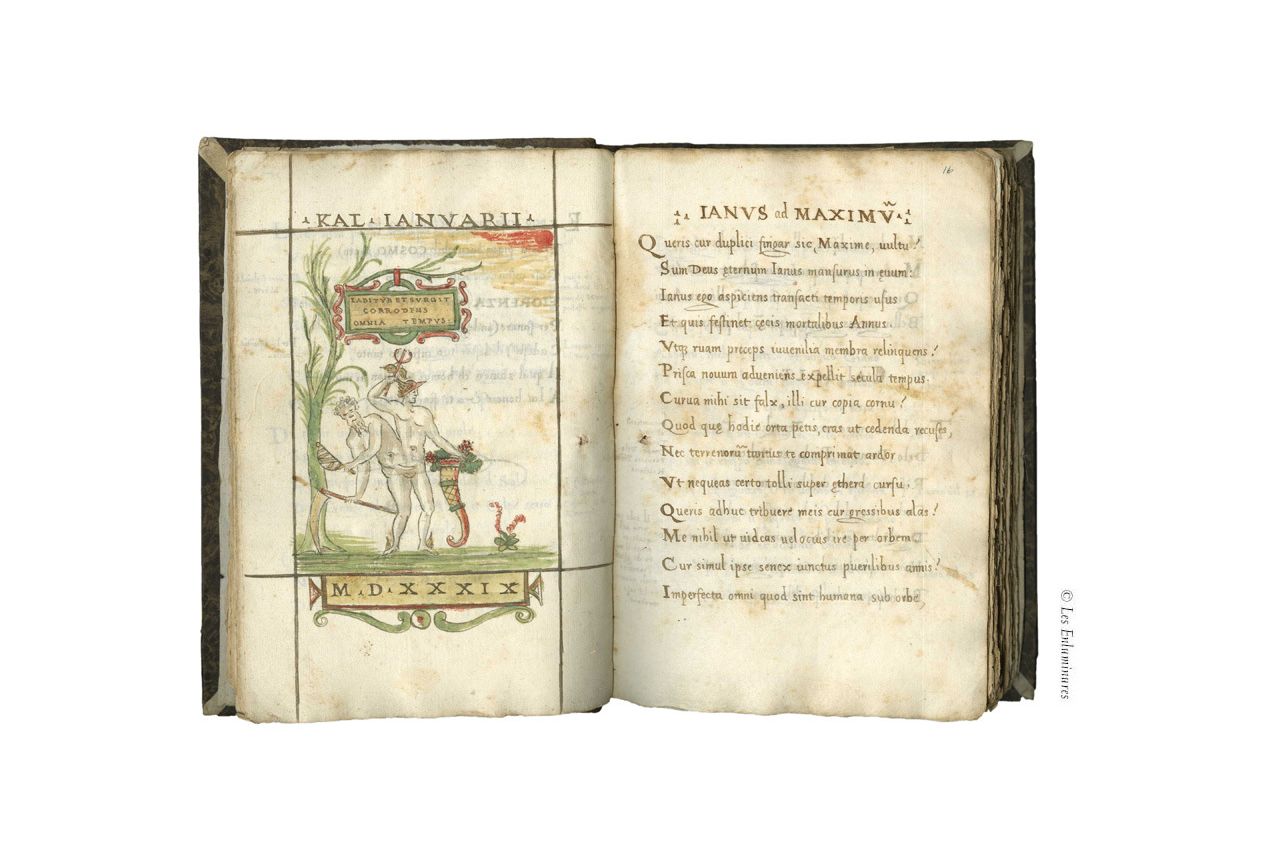 ·KAL·IANVARII·
LABITVR ET SVRGIT
CORRODENS
OMNIA TEMPVS·
M·D·XXXIX
16
IANVS ad MAXIMṼ
Queris cur duplici fingar sic, Maxime, uultu?
Sum Deus ęternum Ianus mansurus in ęuum:
Ianus ego aspiciens transacti temporis usus
Et quis festinet cęcis mortalibus Annus.
Vtq; ruam preceps iuuenilia membra relinquens?
Prisca nouum adueniens expellit secula tempus.
Curua mihi sit falx, illi cur copia cornu?
Quod quę hodie orta petis, cras ut cedenda recuses,
Nec terrenorũ te comprimat ardor
Vt nequeas certo tolli super ęthera cursu.
Queris adhuc tribuere meis cur gressibus alas?
Me nihil ut uideas uelocius ire per orbem
Cur simul ipse senex iunctus puerilibus annis?
Imperfecta omni quod sint humana sub orbe,
© Les Enluminures